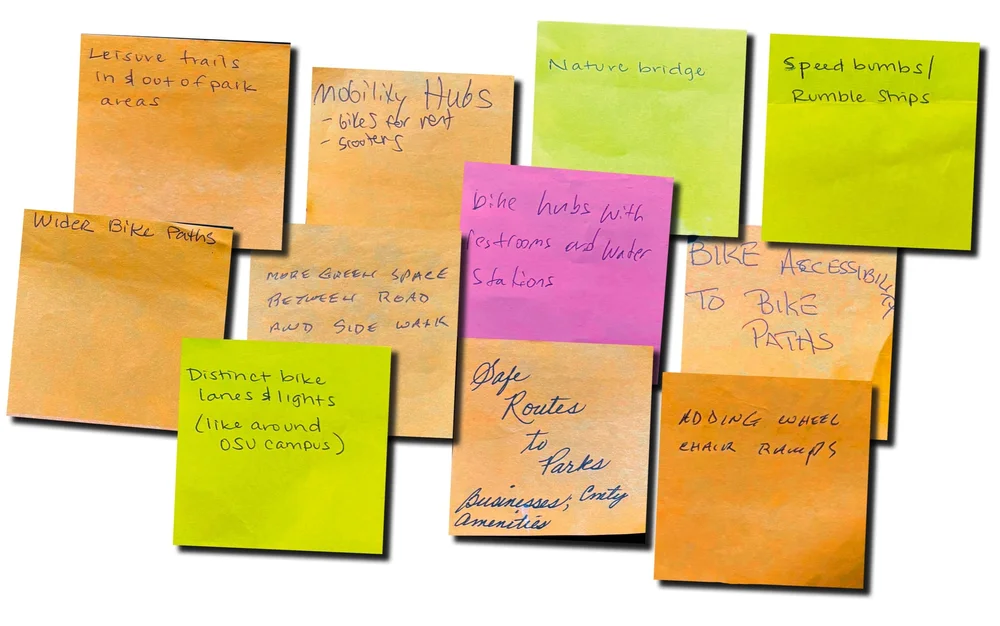 Leisure trails
in & out of park
areas
Mobility Hubs
- bikes for rent
- scooters
Nature bridge
Speed bumbs/
Rumble Strips
Wider Bike Paths
MORE GREEN SPACE
BETWEEN ROAD
AND SIDE WALK
bike hubs with
restrooms and water
stations
BIKE ACCESSIBILITY
TO BIKE
PATHS
Distinct bike
lanes & lights
(like around
OSU campus)
Safe
Routes
to
Parks
Businesses; Cmty
Amenities
ADDING WHEEL
CHAIR RAMPS